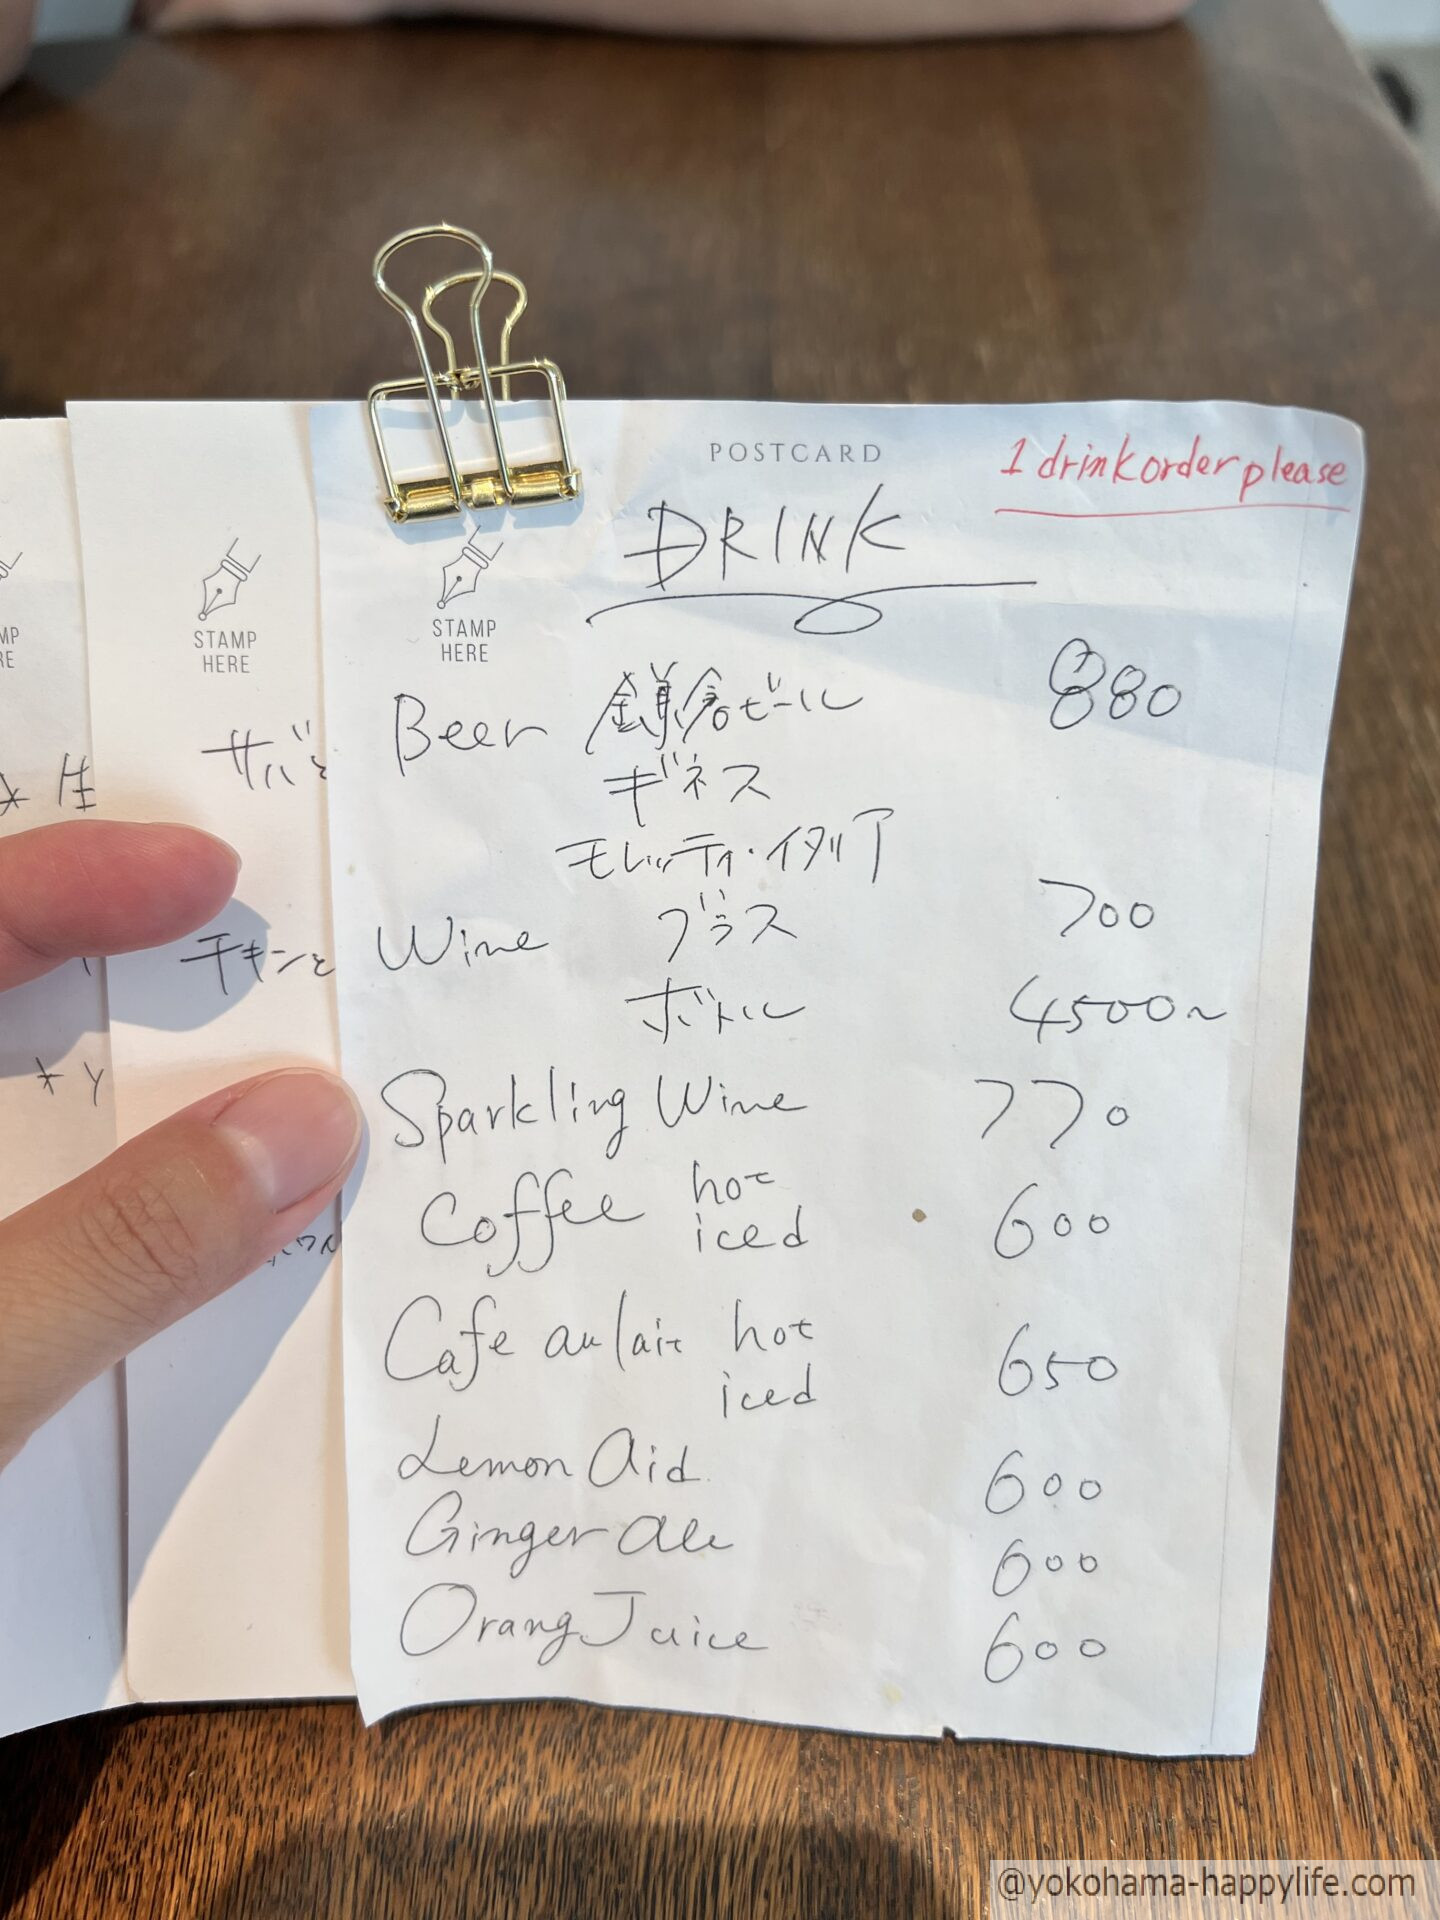 POSTCARD
1 drink order please
DRINK
STAMP
HERE
STAMP
HERE
Beer 鎌倉ビール 880
ギネス
モレッティ・イタリア
Wine グラス 700
ボトル 4500~
Sparkling Wine 770
Coffee hot
iced 600
Cafe au lait hot
iced 650
Lemon Aid 600
Ginger ale 600
Orang Juice 600
サバと
チキンと
@yokohama-happylife.com